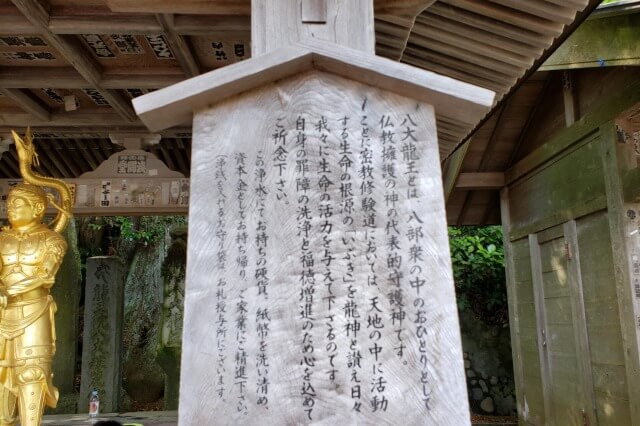 八大龍王とは、八部衆の中のおひとりとして
仏教擁護の神の代表的守護神です。
ことに密教修験道においては、天地の中に活動
する生命の根源の「いぶき」を龍神と讃え日々
我々に生命の活力を与えて下さるのです。
自身の罪障の洗浄と福徳増進のため心を込めて
ご祈念下さい。
この浄水にてお持ちの硬貨、紙幣を洗い清め、
資本金としてお持ち帰り、ご家業にご精進下さい。
(浄銭を入れるお守り袋は、お札授与所にございます。